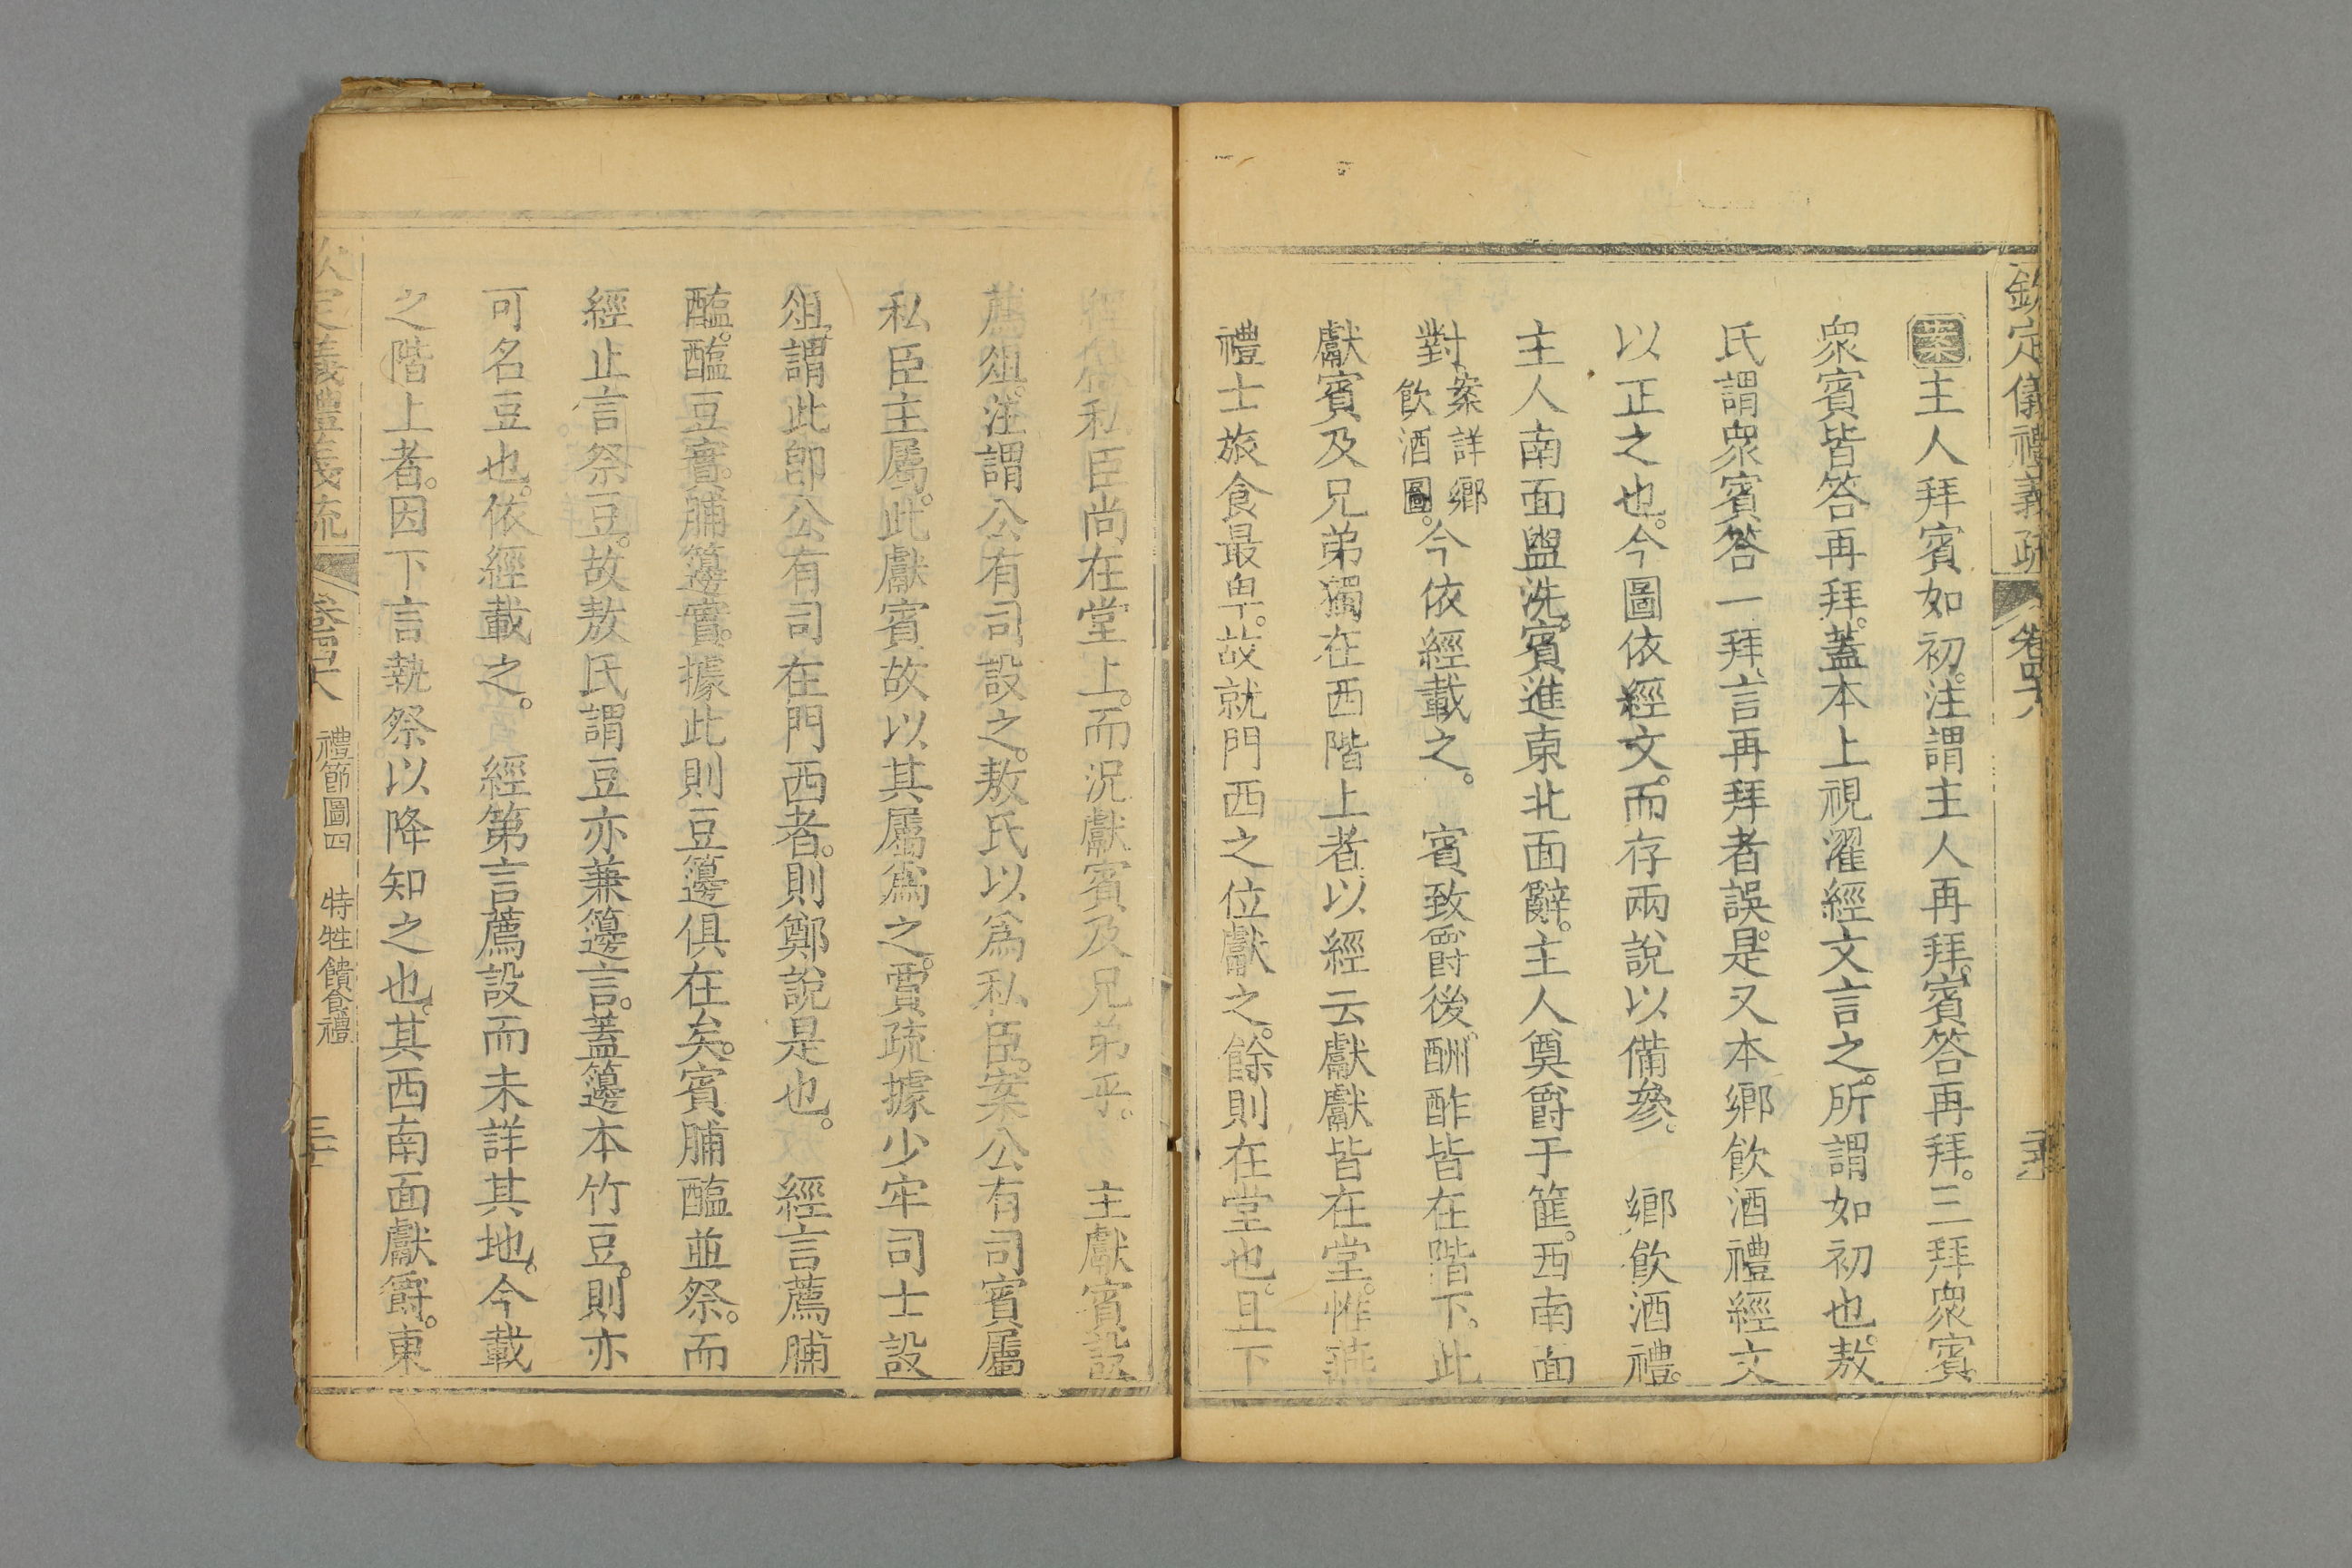 欽定儀禮義疏 卷四十八
案主人拜賓如初。注謂主人再拜。賓答再拜。三拜衆賓。
衆賓皆答再拜。蓋本上視濯經文言之。所謂如初也。敖
氏謂衆賓答一拜、言再拜者誤。是又本鄉飲酒禮經文
以正之也。今圖依經文。而存兩說以備參。 鄉飲酒禮。
主人南面盥洗。賓進東北面辭。主人奠爵于篚。西南面
對。案詳鄉飲酒圖。今依經載之。 賓致爵後。酬酢皆在階下。此
獻賓及兄弟獨在西階上者。以經云獻獻皆在堂。惟燕
禮士旅食最卑。故就門西之位獻之。餘則在堂也。且下
私臣尚在堂上。而況獻賓及兄弟乎。 主獻賓設
薦俎。注謂公有司設之。敖氏以爲私臣。案公有司賓屬
私臣主屬。此獻賓故以其屬爲之。賈疏據少牢司士設
俎。謂此卽公有司在門西者。則鄭說是也。 經言薦脯
醢。醢豆實。脯籩實。據此則豆籩俱在矣。賓脯醢並祭。而
經止言祭豆。故敖氏謂豆亦兼籩言。蓋籩本竹豆。則亦
可名豆也。依經載之。 經第言薦設而未詳其地。今載
之階上者。因下言執祭以降知之也。其西南面獻爵。東
欽定儀禮義疏 卷四十八 禮節圖四 特牲饋食禮 三十